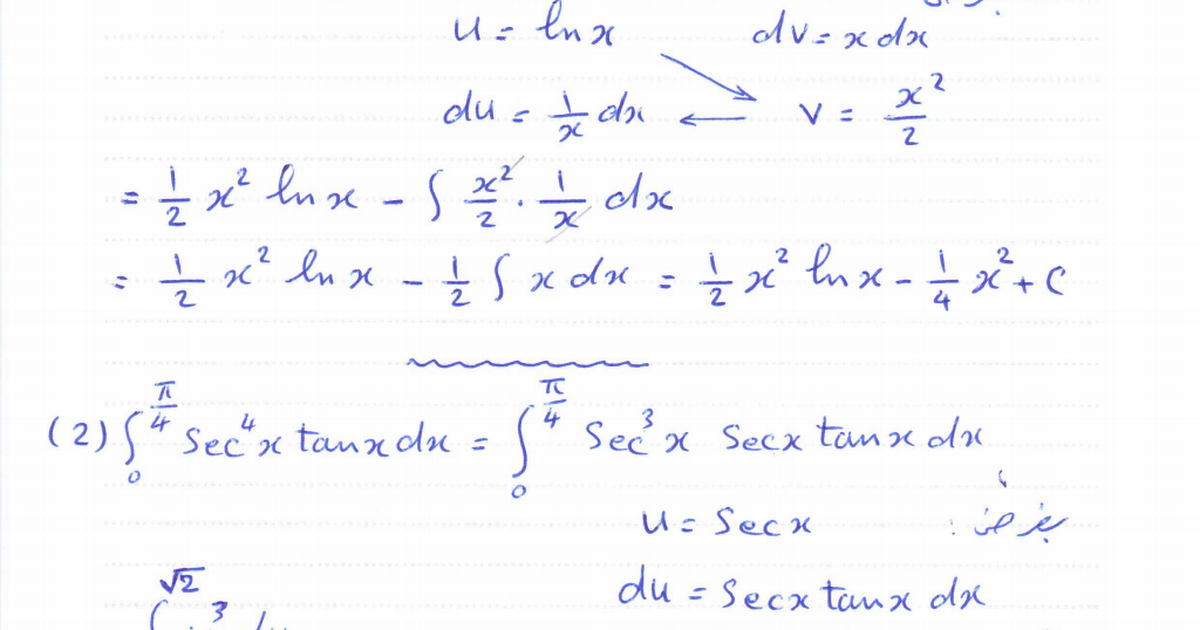 u = ln x dv = x dx
du = 1/x dx v = x²/2
= 1/2 x² ln x - ∫ x²/2 . 1/x dx
= 1/2 x² ln x - 1/2 ∫ x dx = 1/2 x² ln x - 1/4 x² + C
(2) ∫₀^(π/4) Sec⁴x tanx dx = ∫₀^(π/4) Sec³x Secx tanx dx
بفرض : u = Secx
du = Secx tanx dx
√2
3